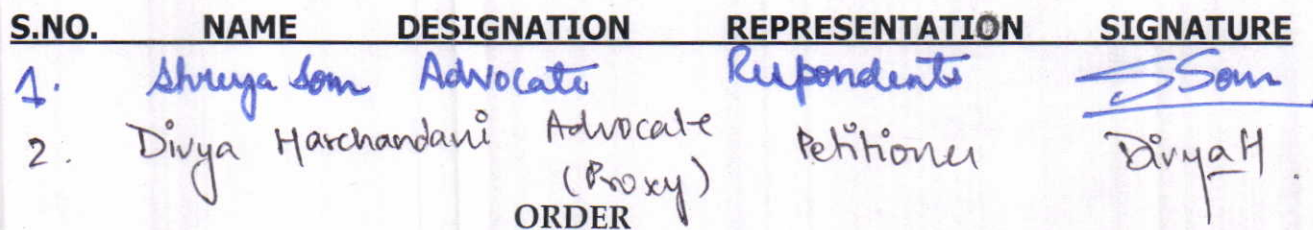 S.NO. NAME DESIGNATION REPRESENTATION SIGNATURE
1. Shreya Som Advocate Respondents SSom
2. Divya Harchandani Advocate Petitioner DivyaH.
(Proxy)
ORDER